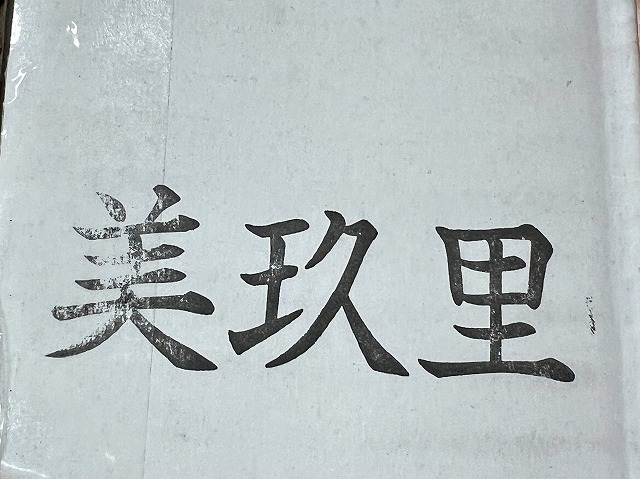 美玖里